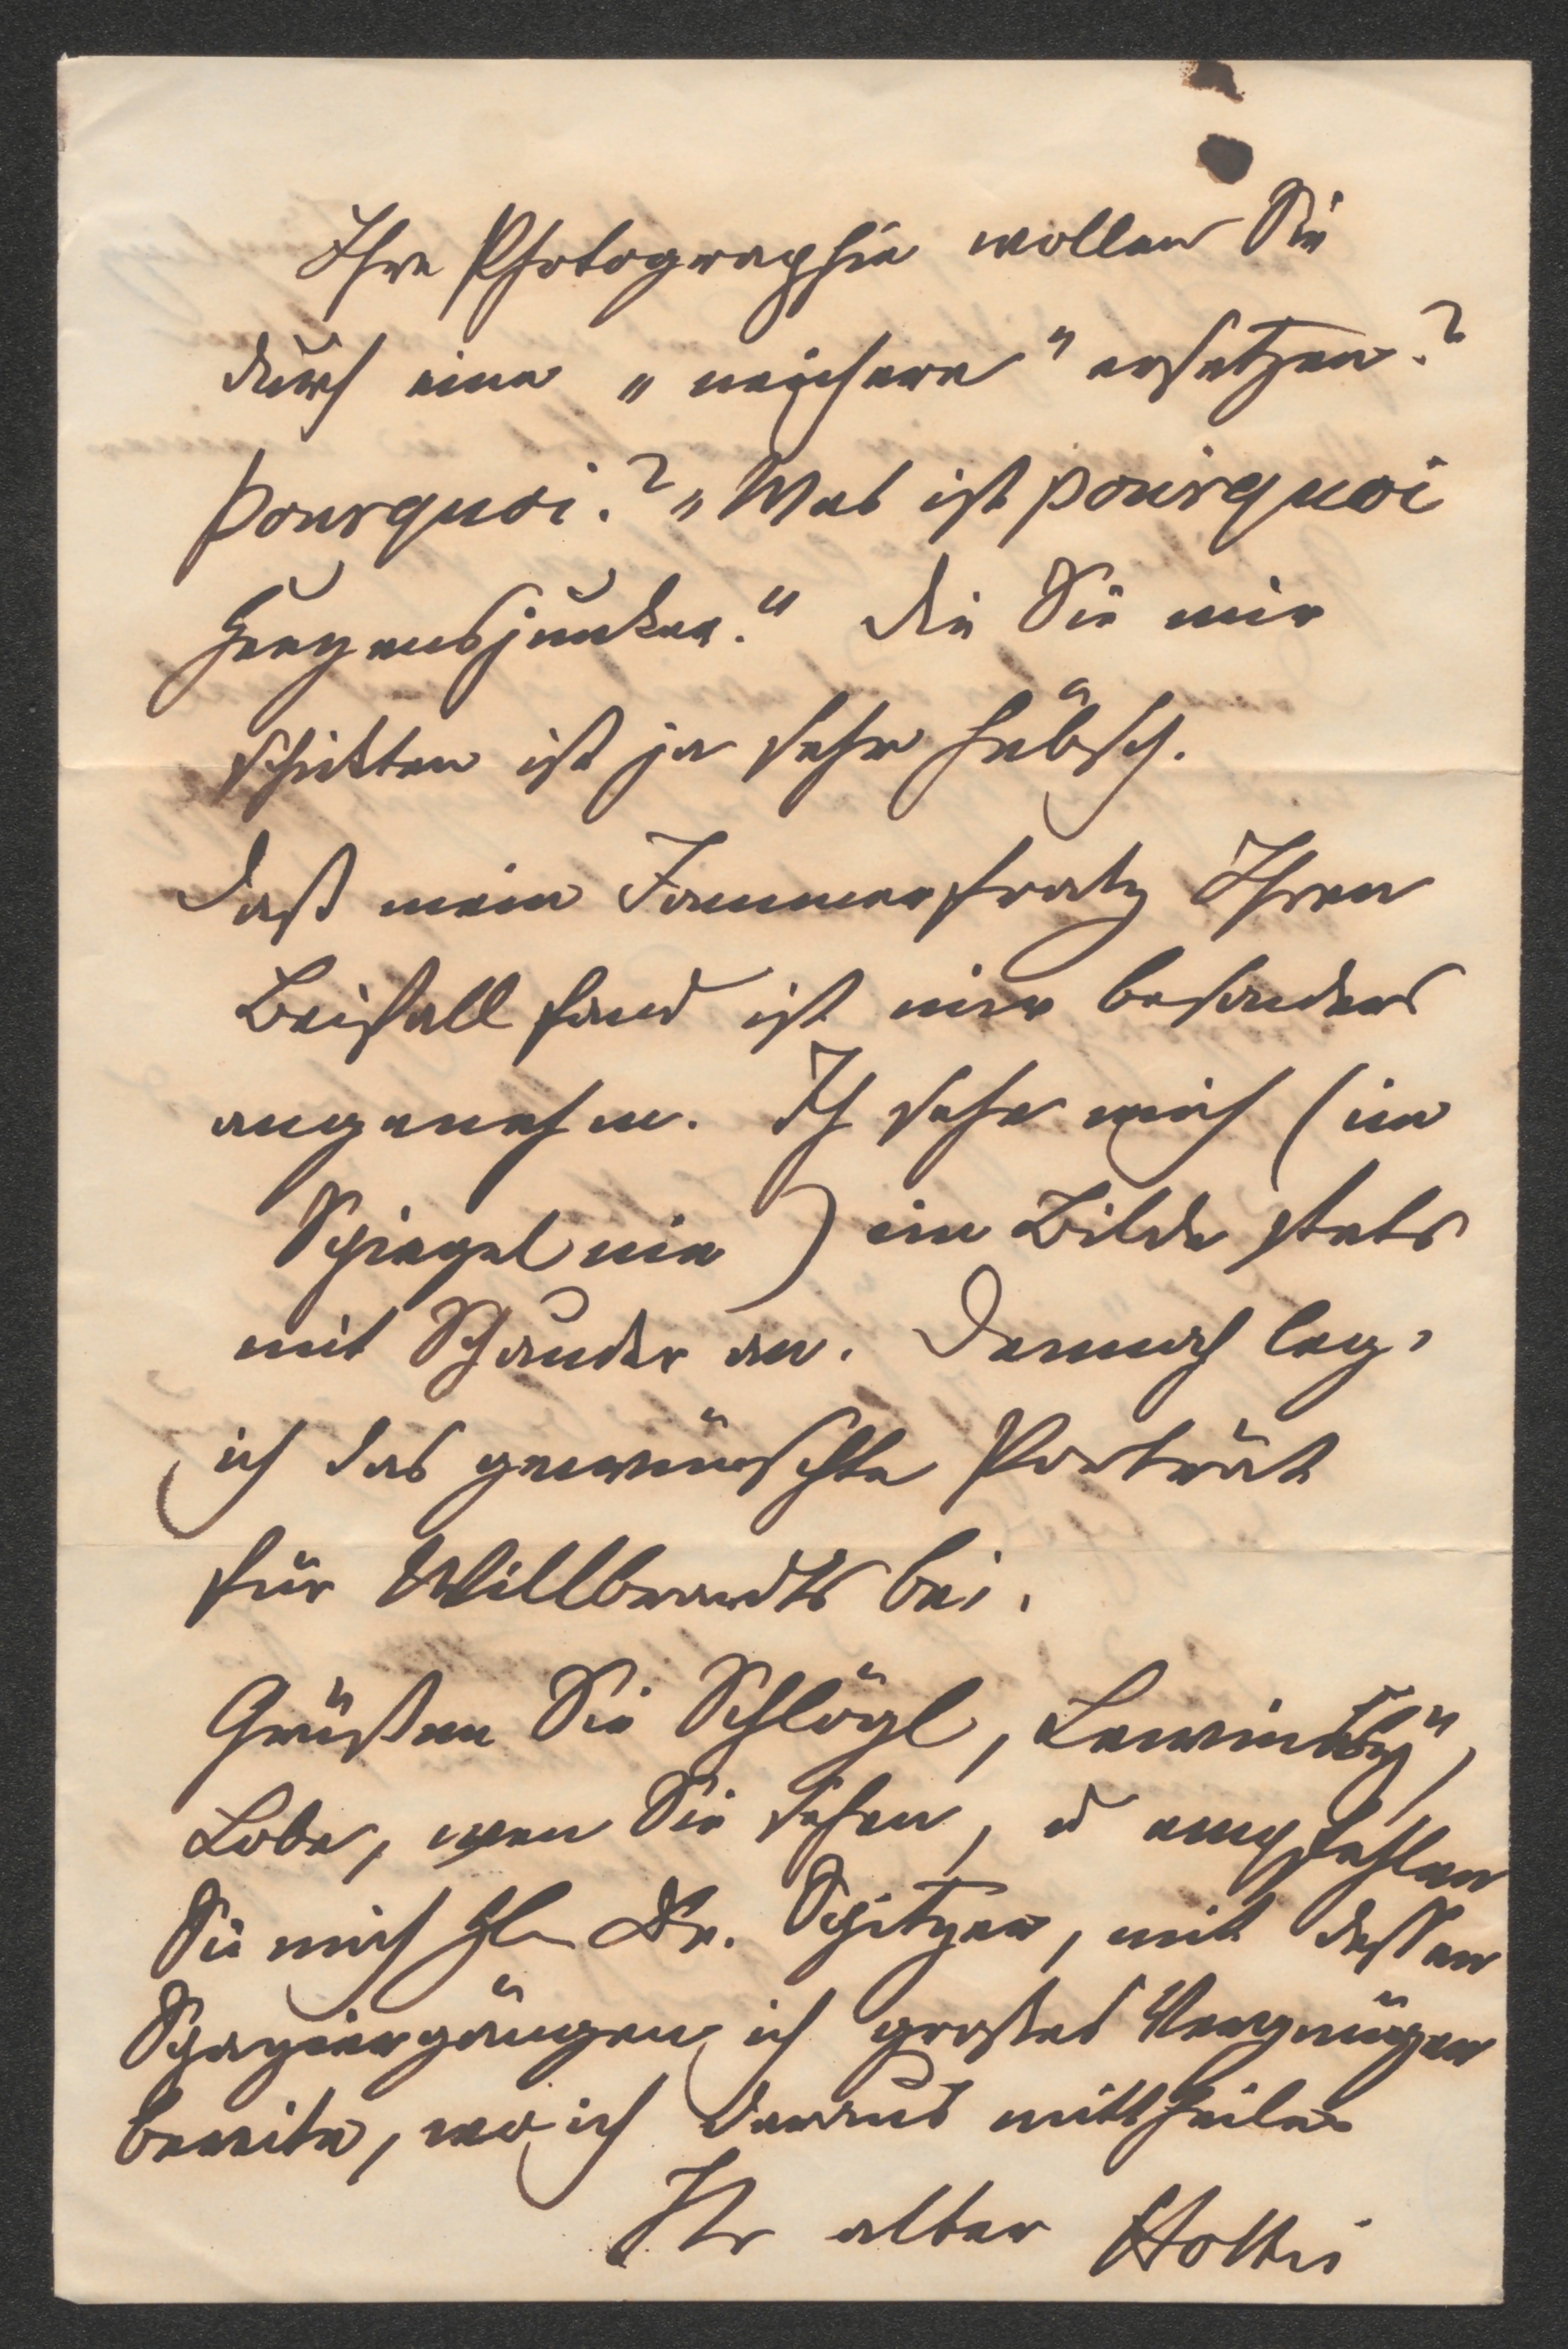 Ihre Photographie wollen Sie
durch eine „reichere" ersetzen?
pourquoi? „Was ist pourquoi
Herzensjunker." Die Sie mir
schikten ist ja sehr hübsch.
Daß mein Jammerfratz Ihren
Beifall fand ist mir besonders
angenehm. Ich sehe mich (im
Spiegel nie) im Bilde stets
mit Schauder an. Dennoch leg,
ich das gewünschte Porträt
für Willbrandts bei.
Grüßen Sie Schlögl, Lewinsky,
Lobe, wen Sie sehen, u empfehlen
Sie mich H Dr. Spitzer, mit dessen
Spaziergängen ich großes Vergnügen
bereite, wo ich daraus mittheile
Ihr alter Holtei